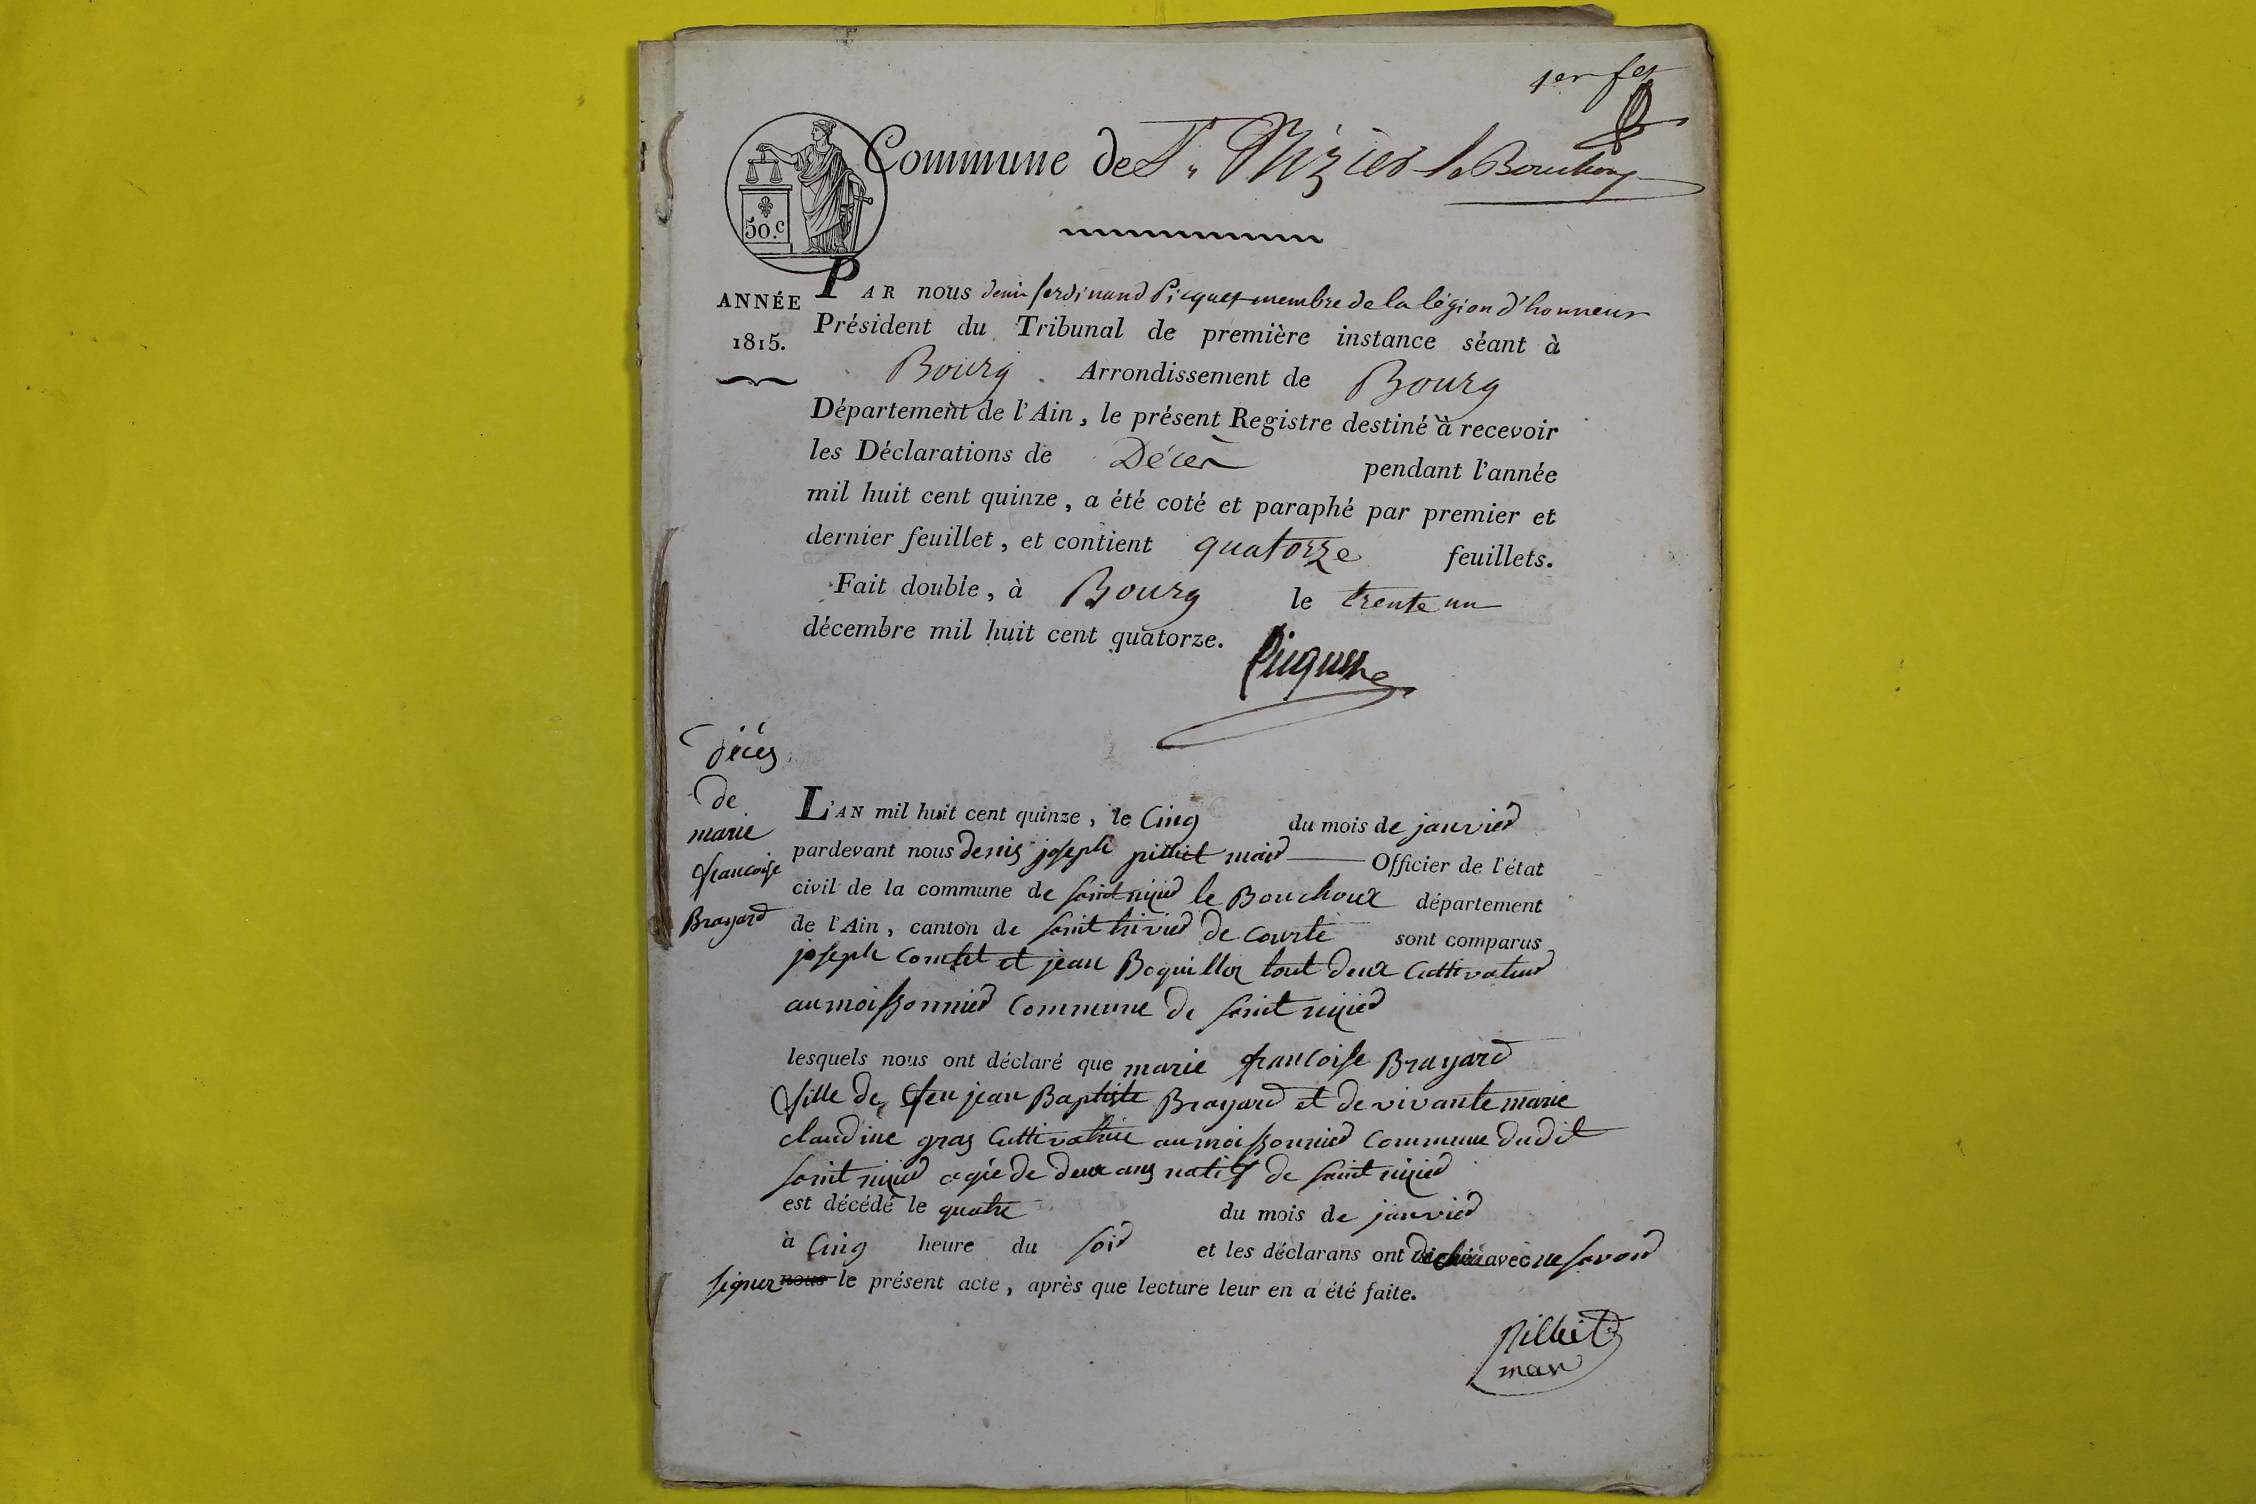 1er fet
Commune de St Nizier le Bouchoux
50.c
ANNÉE
1815.
PAR nous denis ferdinand Picquet membre de la légion d'honneur
Président du Tribunal de première instance séant à
Bourg Arrondissement de Bourg
Département de l'Ain, le présent Registre destiné à recevoir
les Déclarations de Décès pendant l'année
mil huit cent quinze, a été coté et paraphé par premier et
dernier feuillet, et contient quatorze feuillets.
Fait double, à Bourg le trente un
décembre mil huit cent quatorze.
Picquet
décès
de
marie
francoise
Brayard
L'AN mil huit cent quinze, le Cinq du mois de janvier
pardevant nous denis joseph pilliet maire Officier de l'état
civil de la commune de saint nizier le Bouchoux département
de l'Ain, canton de saint trivier de Courte sont comparus
joseph Comtet et jean Boquillon tout deux Cultivateur
au moissonnier Commune de saint nizier
lesquels nous ont déclaré que marie francoise Brayard
fille de feu jean Baptiste Brayard et de vivante marie
claudine gras Cultivatrice au moissonnier Commune dudit
saint nizier agée de deux ans natif de saint nizier
est décédé le quatre du mois de janvier
à Cinq heure du soir et les déclarans ont avec ne savoir
signer nous le présent acte, après que lecture leur en a été faite.
pilliet
maire